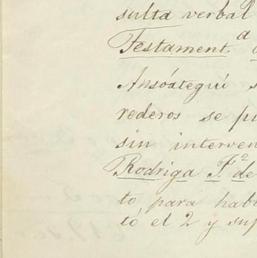 sulta verbal
Testament.ª
Ansóategui s
rederos se pu
sin interven
Rodriga F.ª de
to para hab
tó el 2 y sup